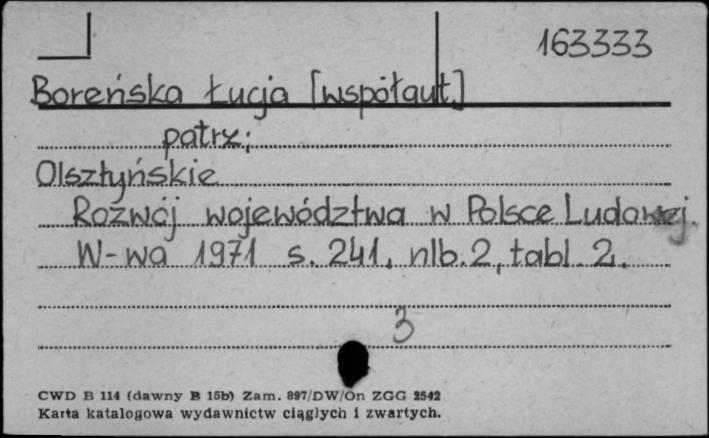 163333
Boreńska Łucja [współaut.]
patrz:
Olsztyńskie
Rozwój województwa w Polsce Ludowej.
W-wa 1971 s. 241, nlb. 2, tabl. 2.
3
CWD B 114 (dawny B 15b) Zam. 897/DW/On ZGG 2542
Karta katalogowa wydawnictw ciągłych i zwartych.